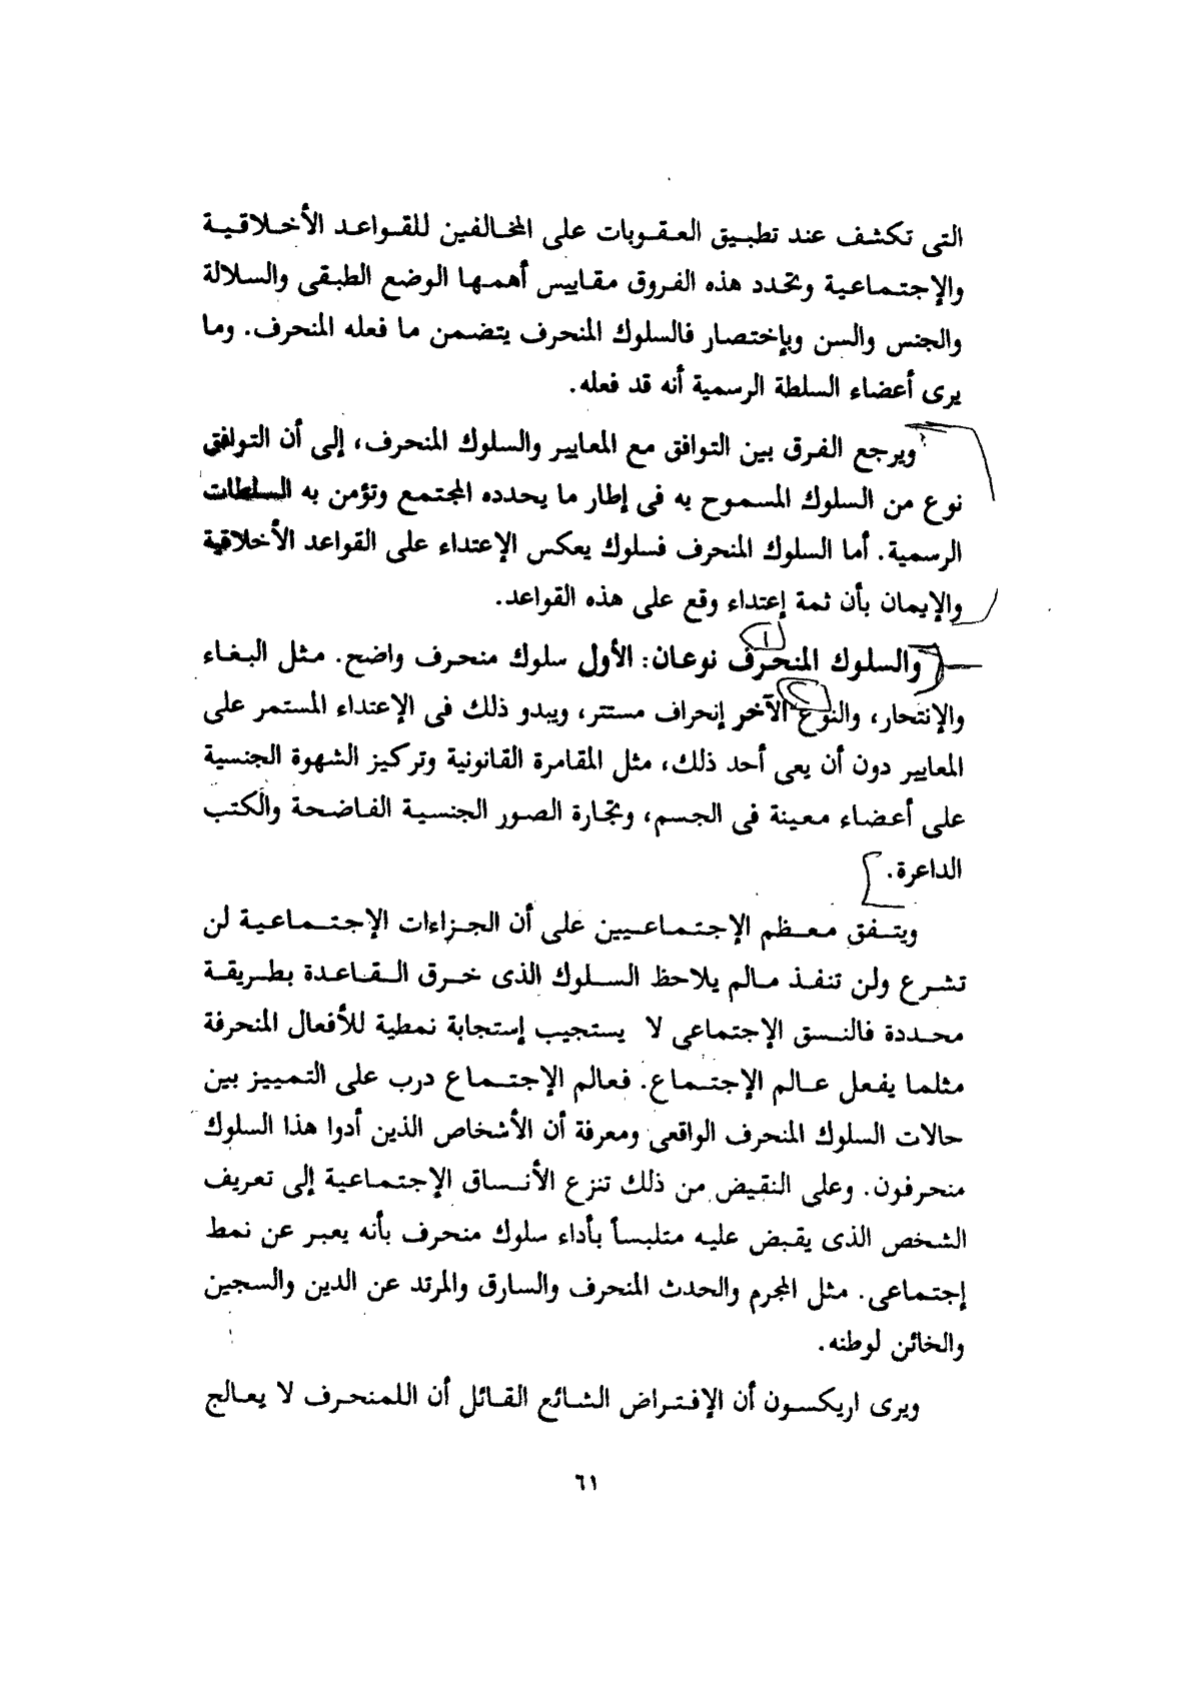 التى تكشف عند تطبيق العقوبات على المخالفين للقواعد الأخلاقية
والإجتماعية وتحدد هذه الفروق مقاييس أهمها الوضع الطبقى والسلالة
والجنس والسن وبإختصار فالسلوك المنحرف يتضمن ما فعله المنحرف. وما
يرى أعضاء السلطة الرسمية أنه قد فعله.
ويرجع الفرق بين التوافق مع المعايير والسلوك المنحرف، إلى أن التوافق
نوع من السلوك المسموح به فى إطار ما يحدده المجتمع وتؤمن به السلطات
الرسمية. أما السلوك المنحرف فسلوك يعكس الإعتداء على القواعد الأخلاقية
والإيمان بأن ثمة إعتداء وقع على هذه القواعد.
والسلوك المنحرف نوعان: الأول سلوك منحرف واضح. مثل البغاء
والإنتحار، والنوع الآخر إنحراف مستتر، ويبدو ذلك فى الإعتداء المستمر على
المعايير دون أن يعى أحد ذلك، مثل المقامرة القانونية وتركيز الشهوة الجنسية
على أعضاء معينة فى الجسم، وتجارة الصور الجنسية الفاضحة والكتب
الداعرة.
ويتفق معظم الإجتماعيين على أن الجزاءات الإجتماعية لن
تشرع ولن تنفذ مالم يلاحظ السلوك الذى خرق القاعدة بطريقة
محددة فالنسق الإجتماعى لا يستجيب إستجابة نمطية للأفعال المنحرفة
مثلما يفعل عالم الإجتماع. فعالم الإجتماع درب على التمييز بين
حالات السلوك المنحرف الواقعى ومعرفة أن الأشخاص الذين أدوا هذا السلوك
منحرفون. وعلى النقيض من ذلك تنزع الأنساق الإجتماعية إلى تعريف
الشخص الذى يقبض عليه متلبساً بأداء سلوك منحرف بأنه يعبر عن نمط
إجتماعى. مثل المجرم والحدث المنحرف والسارق والمرتد عن الدين والسجين
والخائن لوطنه.
ويرى اريكسون أن الإفتراض الشائع القائل أن اللمنحرف لا يعالج
٦١